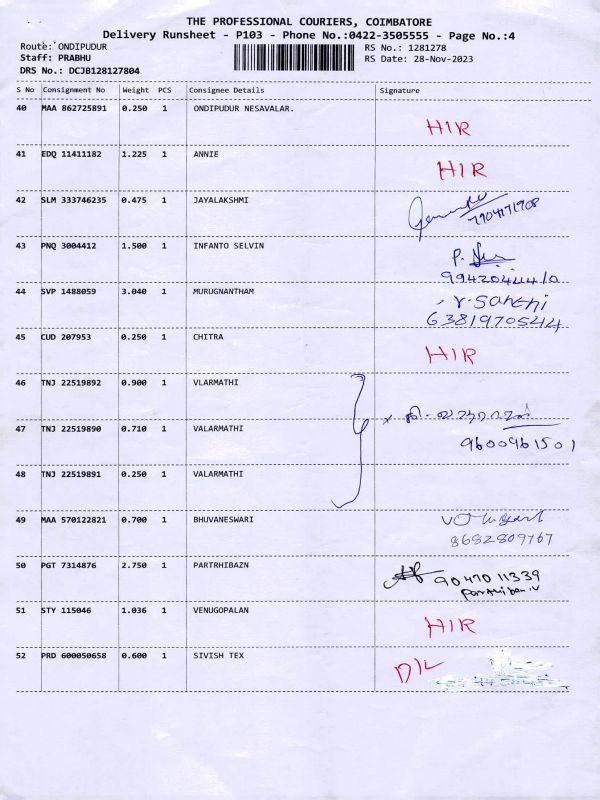 THE PROFESSIONAL COURIERS, COIMBATORE
Delivery Runsheet - P103 - Phone No.:0422-3505555 - Page No.:4
Route: ONDIPUDUR RS No.: 1281278
Staff: PRABHU RS Date: 28-Nov-2023
DRS No.: DCJB128127804
S No Consignment No Weight PCS Consignee Details Signature
40 MAA 862725891 0.250 1 ONDIPUDUR NESAVALAR.
HIR
41 EDQ 11411182 1.225 1 ANNIE
HIR
42 SLM 333746235 0.475 1 JAYALAKSHMI
7904171908
43 PNQ 3004412 1.500 1 INFANTO SELVIN
9942044410
44 SVP 1488059 3.040 1 MURUGNANTHAM
V. Santhi
6381970544
45 CUD 207953 0.250 1 CHITRA
HIR
46 TNJ 22519892 0.900 1 VLARMATHI
47 TNJ 22519890 0.710 1 VALARMATHI
9600961501
48 TNJ 22519891 0.250 1 VALARMATHI
49 MAA 570122821 0.700 1 BHUVANESWARI
8682809767
50 PGT 7314876 2.750 1 PARTRHIBAZN
9047011339
Parthiban.V
51 STY 115046 1.036 1 VENUGOPALAN
HIR
52 PRD 600050658 0.600 1 SIVISH TEX
D/L